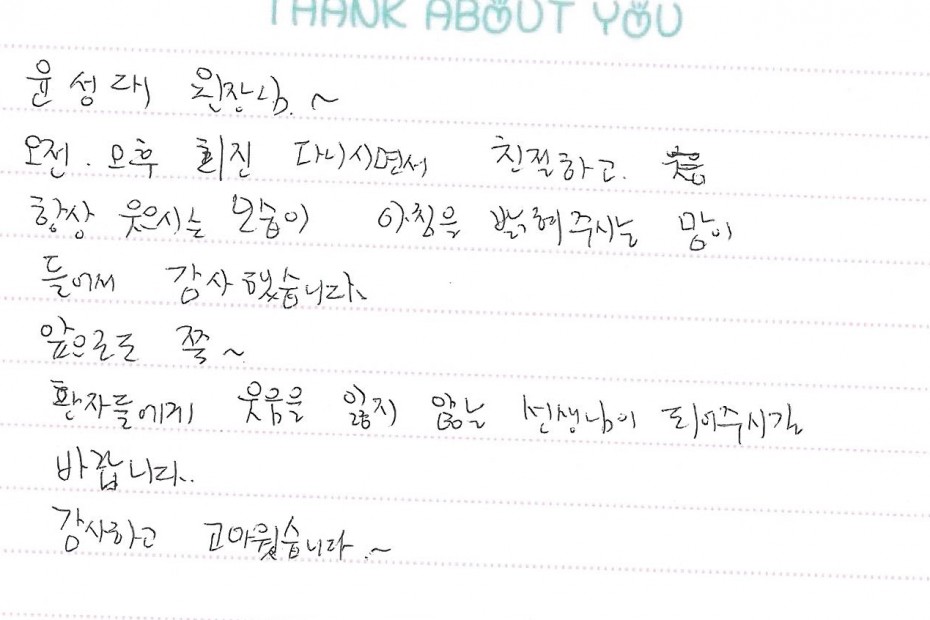 THANK ABOUT YOU
윤성대 원장님.~
오전.오후 회진 다니시면서 친절하고.
항상 웃으시는 모습이 아침을 밝혀주시는 맘이
들어서 감사했습니다.
앞으로도 쭉~
환자들에게 웃음을 잃지 않는 선생님이 되어주시길
바랍니다..
감사하고 고마웠습니다.~